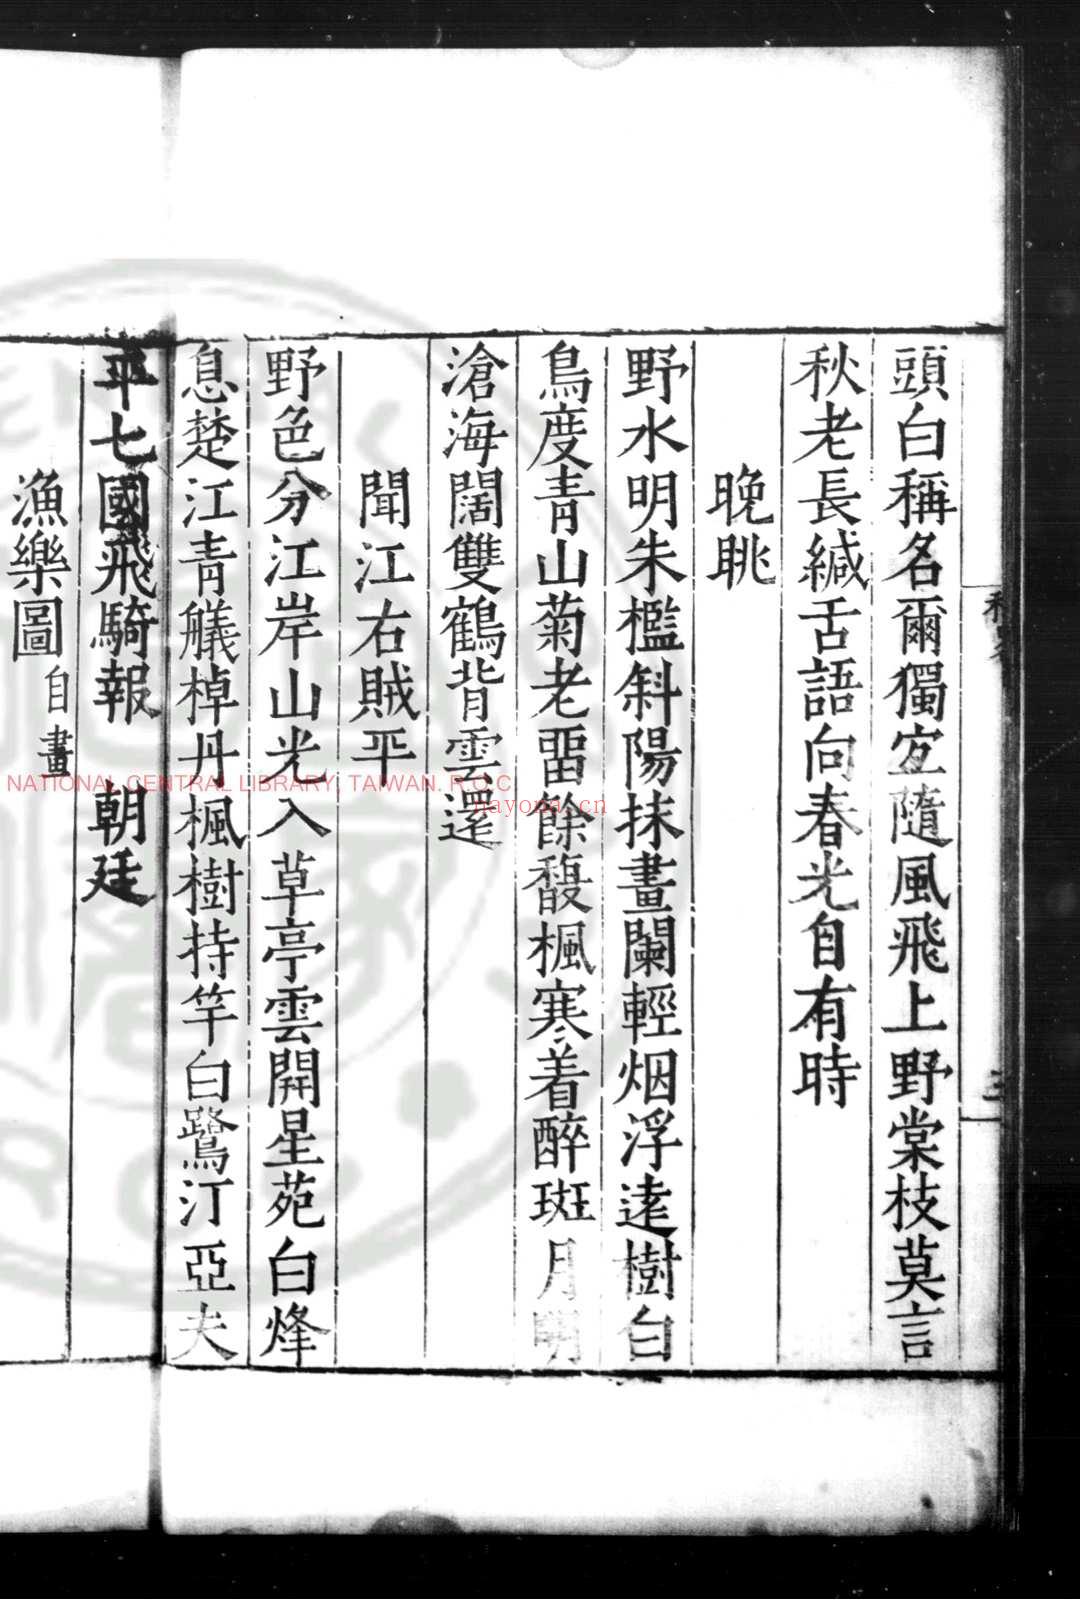 頭白稱名爾獨宜隨風飛上野棠枝莫言
秋老長緘舌語向春光自有時
晚眺
野水明朱檻斜陽抹畫闌輕烟浮遠樹白
鳥度青山菊老畱餘馥楓寒着醉斑月明
滄海闊雙鶴背雲還
聞江右賊平
野色分江岸山光入草亭雲開星苑白烽
息楚江青艤棹丹楓樹持竿白鷺汀亞夫
平七國飛騎報 朝廷
漁樂圖自畫
三
NATIONAL CENTRAL LIBRARY, TAIWAN. R.O.C
nayona.cn